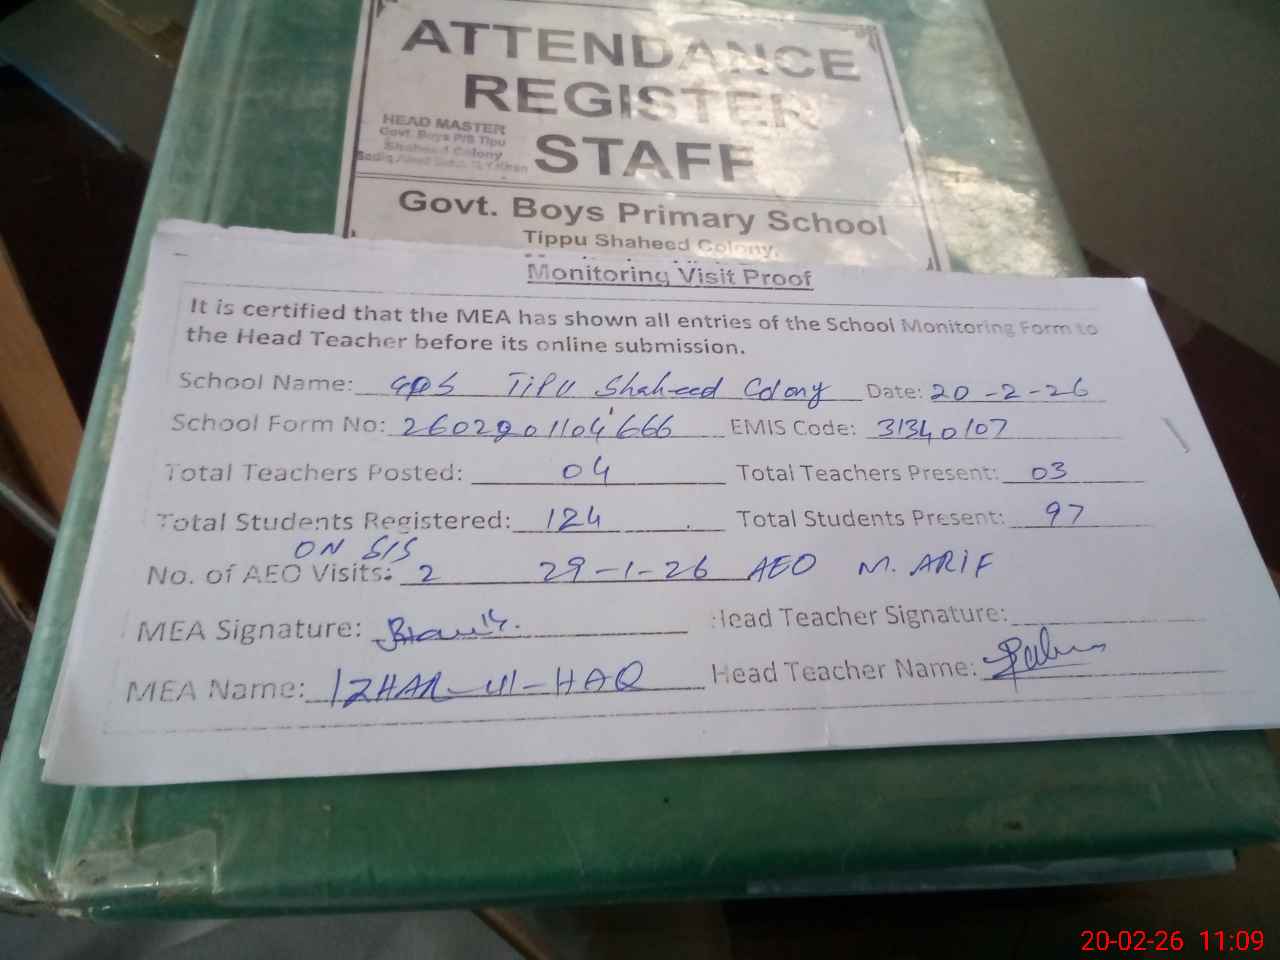 ATTENDANCE
REGISTER
STAFF
HEAD MASTER
Govt. Boys P/S Tipu
Shaheed Colony
Govt. Boys Primary School
Tippu Shaheed Colony,
Monitoring Visit Proof
It is certified that the MEA has shown all entries of the School Monitoring Form to
the Head Teacher before its online submission.
School Name: GPS TIPU Shaheed Colony Date: 20-2-26
School Form No: 2602201104666 EMIS Code: 31340107
Total Teachers Posted: 04 Total Teachers Present: 03
Total Students Registered: 124 Total Students Present: 97
ON SIS
No. of AEO Visits: 2 29-1-26 AEO M. ARIF
MEA Signature: Head Teacher Signature:
MEA Name: IZHAR-ul-HAQ Head Teacher Name:
20-02-26 11:09